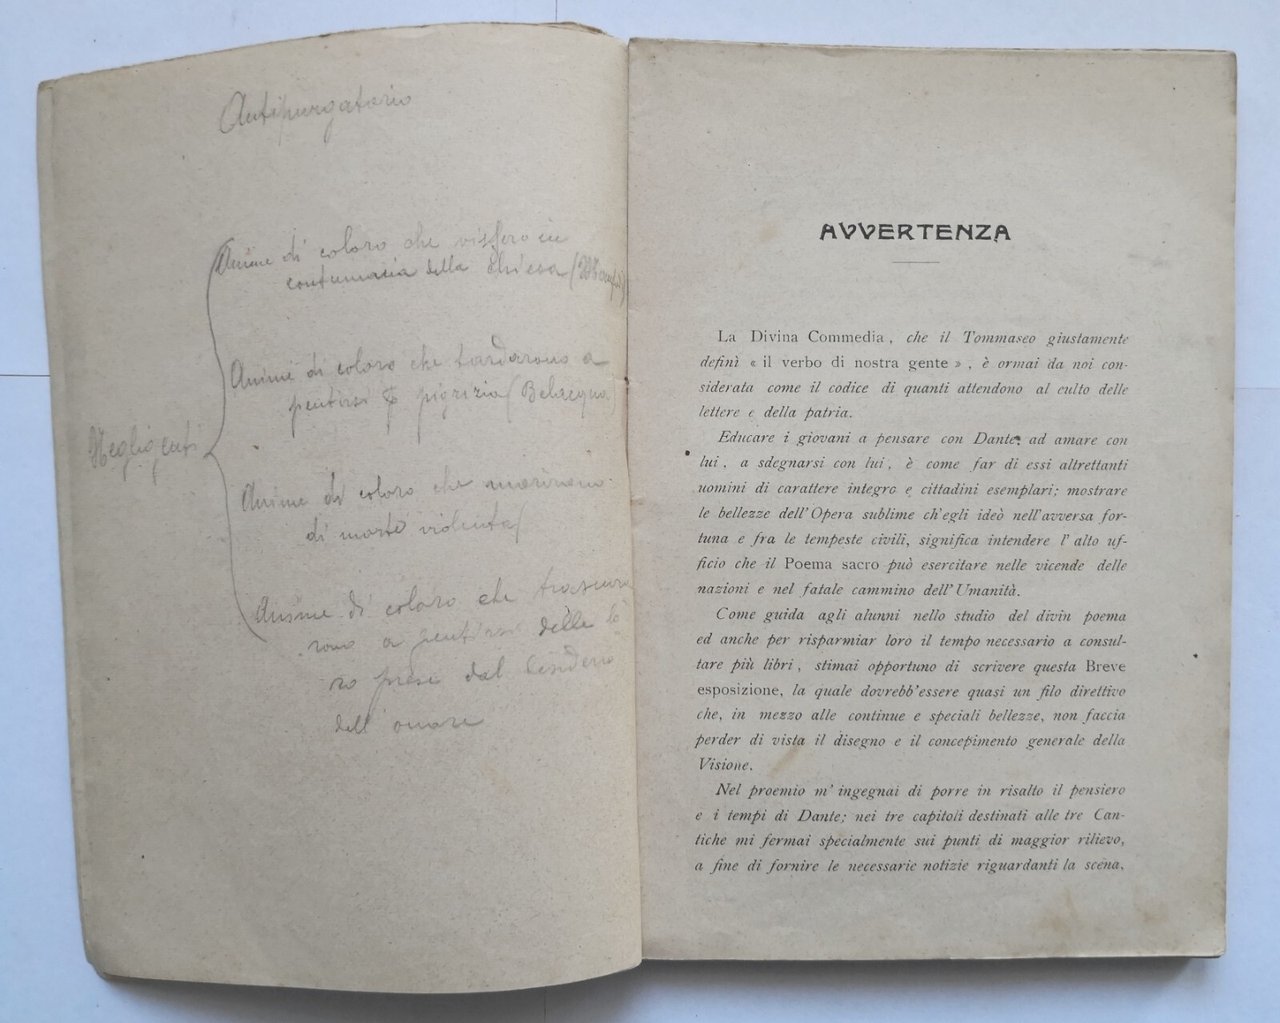 Antipurgatorio
Anime di coloro che vissero in
contumacia della Chiesa (Manfredi)
Anime di coloro che tardarono a
pentirsi p pigrizia (Belacqua)
Negligenti
Anime di coloro che morirono
di morte violenta (
Anime di coloro che trascura
rono a pentirsi delle lo
ro presi dal desiderio
dell'onore
AVVERTENZA
La Divina Commedia, che il Tommaseo giustamente
definì « il verbo di nostra gente », è ormai da noi con-
siderata come il codice di quanti attendono al culto delle
lettere e della patria.
Educare i giovani a pensare con Dante, ad amare con
lui, a sdegnarsi con lui, è come far di essi altrettanti
uomini di carattere integro e cittadini esemplari; mostrare
le bellezze dell'Opera sublime ch'egli ideò nell'avversa for-
tuna e fra le tempeste civili, significa intendere l'alto uf-
ficio che il Poema sacro può esercitare nelle vicende delle
nazioni e nel fatale cammino dell'Umanità.
Come guida agli alunni nello studio del divin poema
ed anche per risparmiar loro il tempo necessario a consul-
tare più libri, stimai opportuno di scrivere questa Breve
esposizione, la quale dovrebb'essere quasi un filo direttivo
che, in mezzo alle continue e speciali bellezze, non faccia
perder di vista il disegno e il concepimento generale della
Visione.
Nel proemio m'ingegnai di porre in risalto il pensiero
e i tempi di Dante; nei tre capitoli destinati alle tre Can-
tiche mi fermai specialmente sui punti di maggior rilievo,
a fine di fornire le necessarie notizie riguardanti la scena,